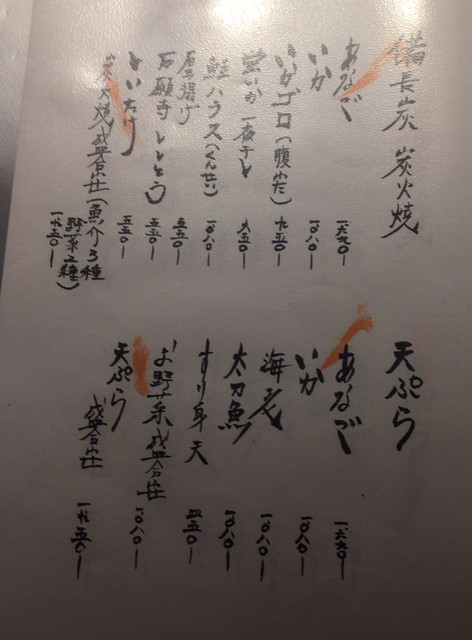 備長炭 炭火焼
あなご 一六六〇―
いか 一〇八〇―
いかゴロ(腹わた) 九五〇―
蛍いか 一夜干し 八五〇―
鮭ハラス(くんせい) 一〇八〇―
厚揚げ 五五〇―
万願寺ししとう 五五〇―
しいたけ 五五〇―
炭火焼盛合せ(魚介3種
野菜2種) 一九五〇―
天ぷら
あなご 一六六〇―
いか 一〇八〇―
海老 一〇八〇―
太刀魚 一〇八〇―
すり身天 四五〇―
お野菜盛合せ 一〇八〇―
天ぷら盛合せ 一九五〇―